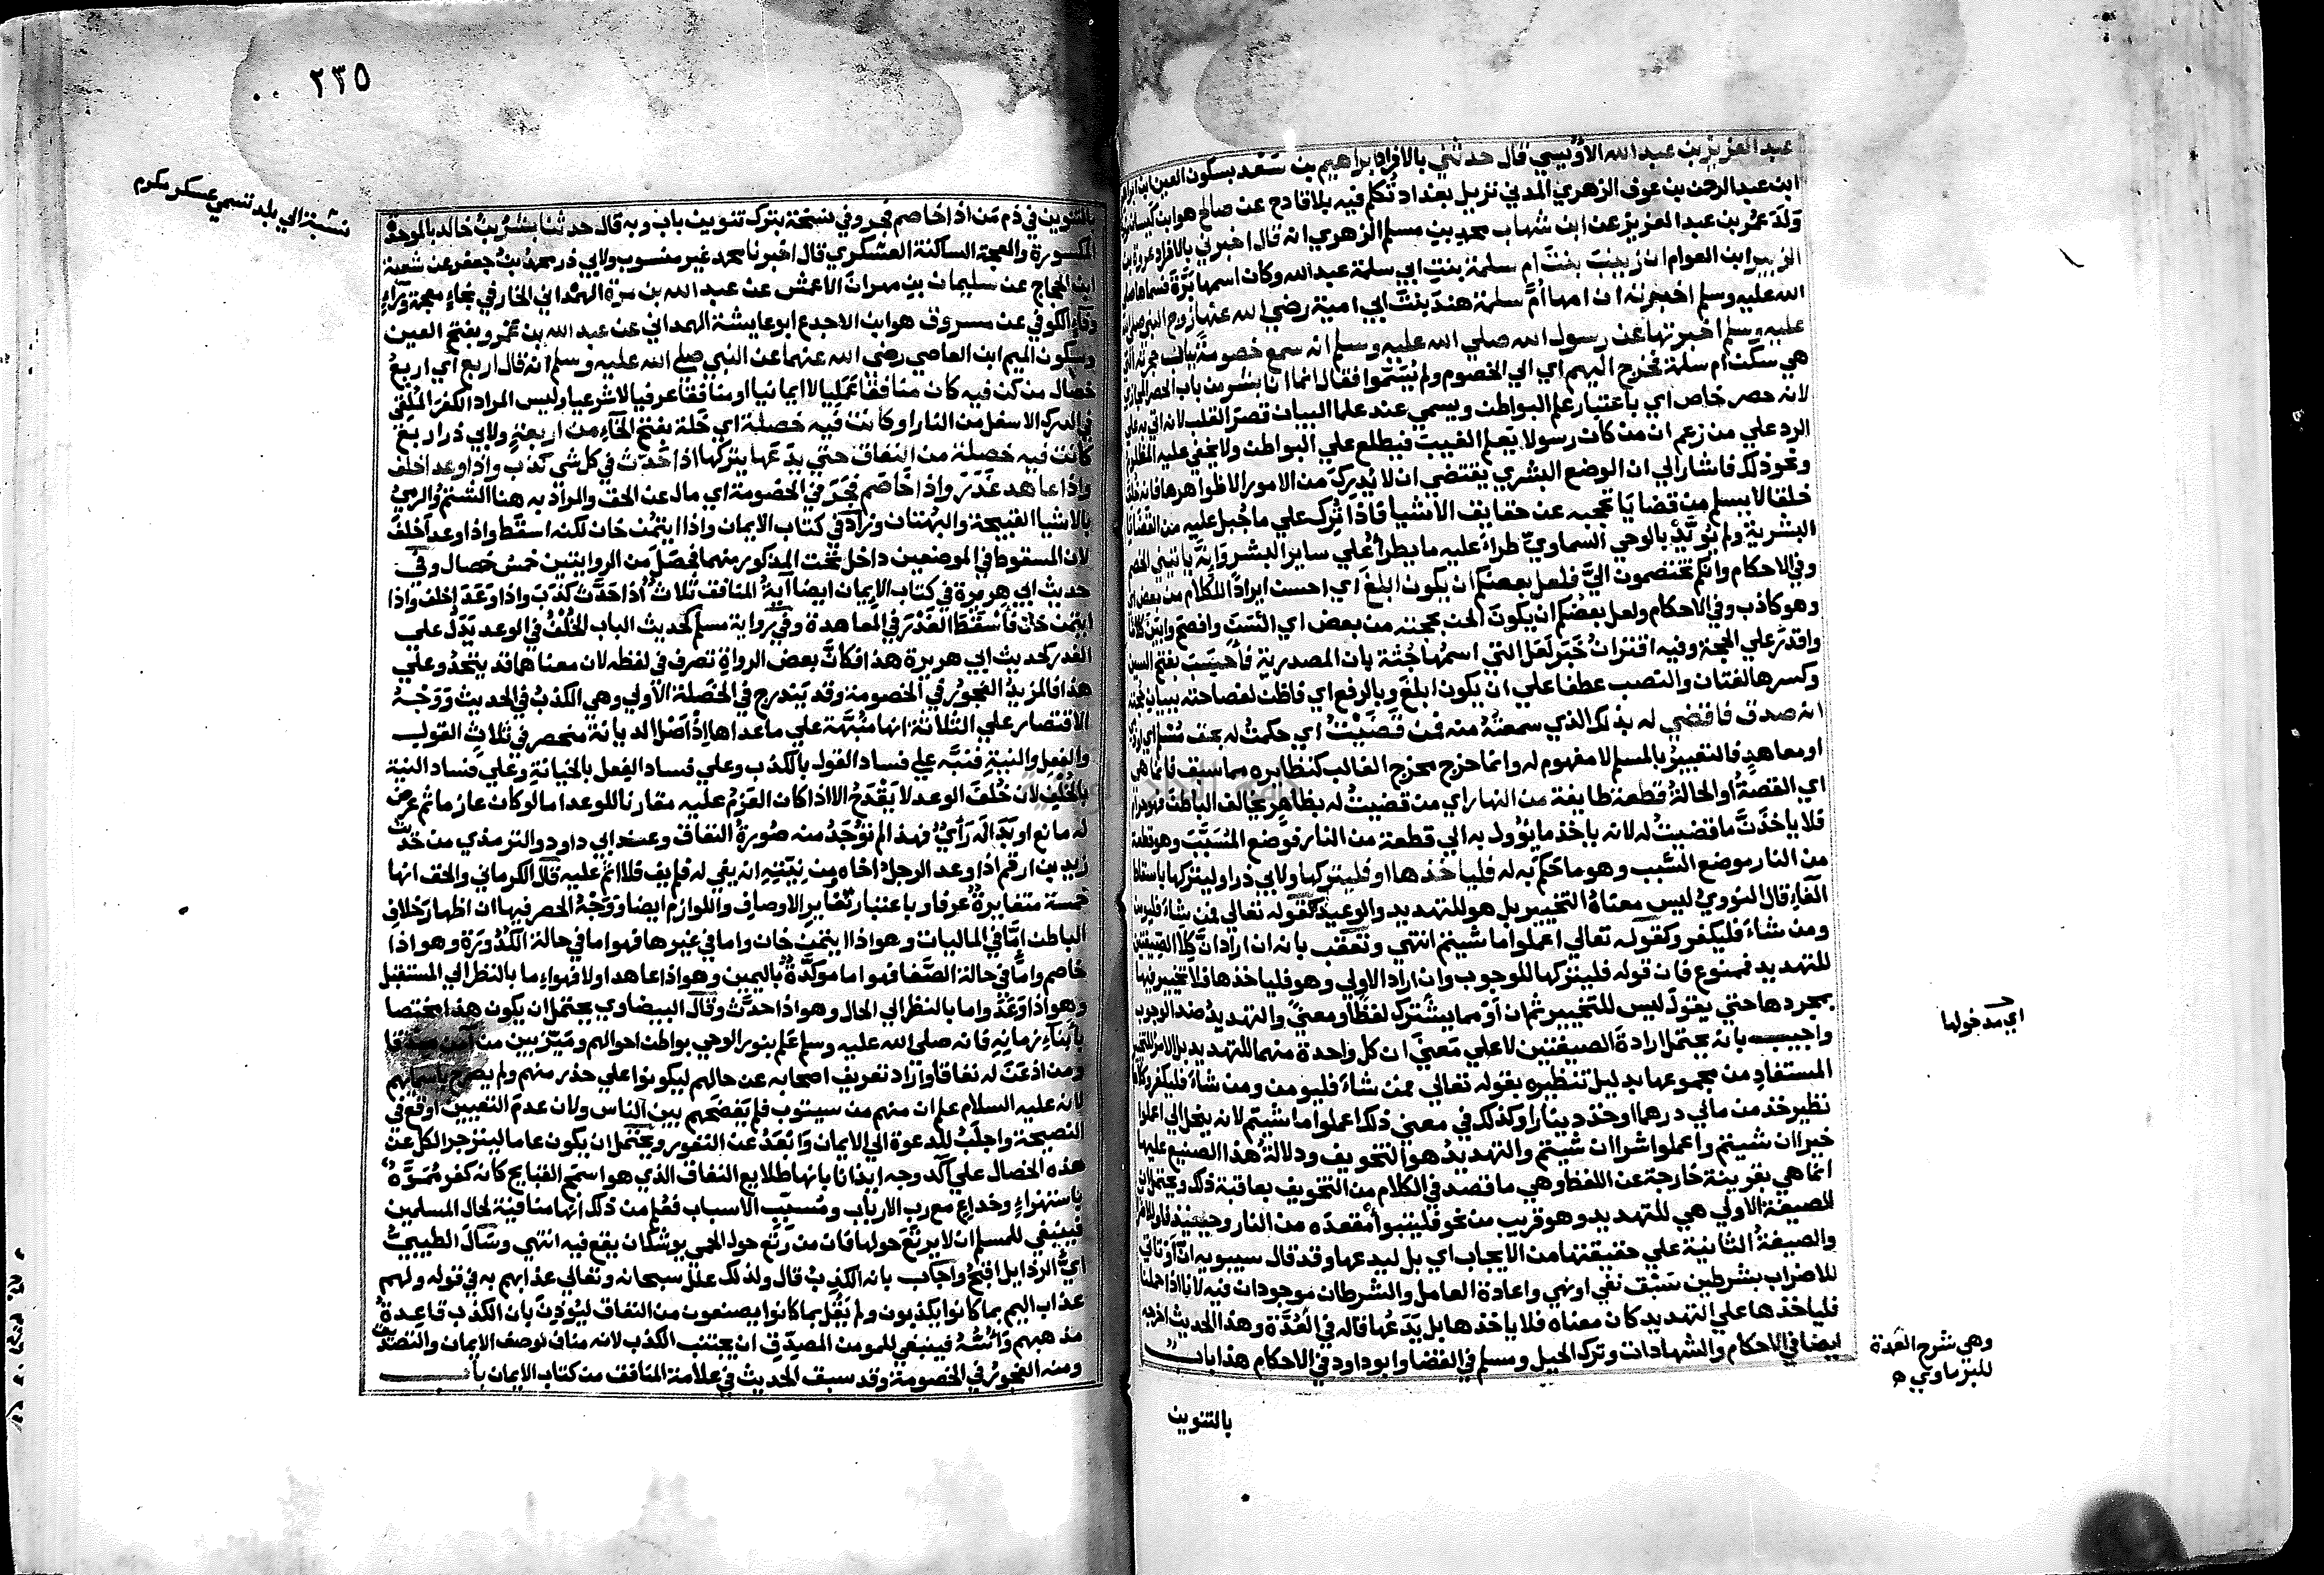 عبد العزيز بن عبد الله الأويسي قال حدثني بالافراد ابراهيم بن سعد بسكون العين ابن ابراهيم
ابن عبد الرحمن بن عوف الزهري المدني نزيل بغداد تكلم فيه بلا قادح عن صالح هو ابن كيسان
ولد عمر بن عبد العزيز عن ابن شهاب محمد بن مسلم الزهري انه قال اخبرني بالافراد عروة بن
الزبير ابن العوام ان زينب بنت ام سلمة بنت ابي سلمة عبد الله وكان اسمها برة فسماها
الله عليه وسلم اخبرته ان امها ام سلمة هند بنت ابي امية رضي الله عنها زوج النبي صلى الله
عليه وسلم اخبرتها عن رسول الله صلي الله عليه وسلم انه سمع خصومة بباب حجرته التي
هي سكن ام سلمة فخرج اليهم اي الي الخصوم ولم يسموا فقال انما انا بشر من باب الحصر المجازي
لانه حصر خاص اي باعتبار علم البواطن ويسمي عند علما البيان قصر القلب لانه اتي به علي
الرد علي من زعم ان من كان رسولا يعلم الغيب فيطلع علي البواطن ولا يخفي عليه المظلوم
ونحو ذلك فاشار الي ان الوضع البشري يقتضي ان لا يدرك من الامور الا ظواهرها فانه خلق
خلقا لا يسلم من قضايا تحجبه عن حقايق الاشيا فاذا ترك علي ما جبل عليه من القضايا
البشرية ولم يؤيد بالوحي السماوي طرأ عليه ما يطرأ علي ساير البشر وانه ياتيني الخصم
وفي الاحكام وانكم تختصمون الي فلعل بعضكم ان يكون ابلغ اي احسن ايرادا للكلام من بعض اي
وهو كاذب وفي الاحكام ولعل بعضكم ان يكون الحن بحجته من بعض اي السن وافصح وابين كلاما
واقدر علي الحجة وفيه اقتران خبر لعل التي اسمها جثة بان المصدرية فاحسب بفتح السين
وكسرها لغتان والنصب عطفا علي ان يكون ابلغ وبالرفع اي فاظن لفصاحته ببيان حجته
انه صدق فاقضي له بذلك الذي سمعته منه فمن قضيت اي حكمت له بحق مسلم اي او ذمي
او معاهد فالتعبير بالمسلم لا مفهوم له وانما خرج مخرج الغالب كنظايره مما سبق فانما هي
اي القصة او الحالة قطعة طايفة من النار اي من قضيت له بظاهر يخالف الباطن فهو حرام
فلا ياخذن ما قضيت له لانه ياخذ ما يؤول به الي قطعة من النار فوضع المسبب وهو قطعة
من النار موضع السبب وهو ما حكم به له فلياخذها او فليتركها ولابي ذر او ليتركها باسقاط
الفاء قال النووي ليس معناه التخيير بل هو للتهديد والوعيد كقوله تعالي فمن شاء فليومن
ومن شاء فليكفر وكقوله تعالي اعملوا ما شيتم انتهي وتعقب بانه ان اراد ان كلا الصيغتين
للتهديد فممنوع فان قوله فليتركها للوجوب وان اراد الاولي وهو فلياخذها فلا تخيير فيها
بمجردها حتي يقول ليس للتخيير ثم ان او مما يشترك لفظا ومعني والتهديد ضد الوجوب
واجيب بانه يحتمل ارادة الصيغتين لا علي معني ان كل واحدة منهما للتهديد بل الامر للتخيير
المستفاد من مجموعها بدليل تنظيره بقوله تعالي فمن شاء فليومن ومن شاء فليكفر وكلام
نظير خذ من مالي درهما او خذ دينارا وكذلك في معني ذلك اعملوا ما شيتم لانه ينحل الي اعملوا
خيرا ان شيتم واعملوا شرا ان شيتم والتهديد هو التخويف ودلالة هذا الصنيع عليها
انما هي بقرينة خارجة عن اللفظ وهي ما قصد في الكلام من التخويف بعاقبة ذلك ويحتمل ان
الصيغة الاولي هي للتهديد وهو قريب من نحو فليتبوأ مقعده من النار وحينيذ
والصيغة الثانية علي حقيقتها من الايجاب اي بل ليدعها وقد قال سيبويه ان او تاتي
للاضراب بشرطين سبق نفي او نهي واعادة العامل والشرطان موجودان فيه لانا اذا حملنا
فلياخذها علي التهديد كان معناه فلا ياخذها بل يدعها قاله في العدة وهذا الحديث اخرجه
ايضا في الاحكام والشهادات وترك الحيل ومسلم في القضا وابو داود في الاحكام هذا باب
اي مدخولها
وهي شرح العمدة
للبرماوي ه
بالتنوين
٢٣٥
نسبة الي بلد تسمي عسكر مكرم
بالتنوين في ذم من اذا خاصم فجر وفي نسخة بترك تنوين باب وبه قال حدثنا بشر بن خالد بالموحدة
المكسورة والمعجمة الساكنة العسكري قال اخبرنا محمد غير منسوب ولابي ذر محمد بن جعفر عن شعبة
ابن الحجاج عن سليمان بن مهران الاعمش عن عبد الله بن مرة الهمداني الخارفي بخاء معجمة وراء
وفاء الكوفي عن مسروق هو ابن الاجدع ابو عايشة الهمداني عن عبد الله بن عمرو بفتح العين
وسكون الميم ابن العاصي رضي الله عنهما عن النبي صلى الله عليه وسلم انه قال اربع اي اربع
خصال من كن فيه كان منافقا عمليا لا ايمانيا او منافقا عرفيا لا شرعيا وليس المراد الكفر الملقي
في الدرك الاسفل من النار او كانت فيه خصلة اي خلة بفتح الخاء من اربعة ولابي ذر اربع
كانت فيه خصلة من النفاق حتي يدعها يتركها اذا حدث في كل شي كذب واذا وعد اخلف
واذا عاهد غدر واذا خاصم فجر في الخصومة اي مال عن الحق والمراد به هنا الشتم والرمي
بالاشيا القبيحة والبهتان وزاد في كتاب الايمان واذا ايتمن خان لكنه اسقط واذا وعد اخلف
لان المسقوط في الموضعين داخل تحت المذكور منهما فحصل من الروايتين خمس خصال وفي
حديث ابي هريرة في كتاب الايمان ايضا اية المنافق ثلاث اذا حدث كذب واذا وعد اخلف واذا
ايتمن خان فاسقط الغدر في المعاهدة وفي رواية مسلم لحديث الباب الخلف في الوعد بدل علي
الغدر كحديث ابي هريرة هذا فكان بعض الرواة تصرف في لفظه لان معناهما قد يتحد وعلي
هذا فالمزيد الفجور في الخصومة وقد يندرج في الخصلة الاولي وهي الكذب في الحديث ووجه
الاقتصار علي الثلاثة انها منبهة علي ما عداها اذ اصل الديانة منحصر في ثلاث القول
والفعل والنية فنبه علي فساد القول بالكذب وعلي فساد الفعل بالخيانة وعلي فساد النية
بالخلف لان خلف الوعد لا يقدح الا اذا كان العزم عليه مقارنا للوعد اما لو كان عازما ثم عرض
له مانع او بدا له رأي فهذا لم توجد منه صورة النفاق وعند ابي داود والترمذي من حديث
زيد بن ارقم اذا وعد الرجل اخاه ومن نيته ان يفي له فلم يف فلا اثم عليه قال الكرماني والحق انها
خمسة متغايرة عرفا وباعتبار تغاير الاوصاف واللوازم ايضا ووجه الحصر فيها ان اظهار خلاف
الباطن اما في الماليات وهو اذا ايتمن خان واما في غيرها فهو اما في حالة الكدورة وهو اذا
خاصم واما في حالة الصفا فهو اما مؤكدة باليمين وهو اذا عاهد او لا فهو اما بالنظر الي المستقبل
وهو اذا وعد واما بالنظر الي الحال وهو اذا حدث وقال البيضاوي يحتمل ان يكون هذا مختصا
بابناء زمانه فانه صلى الله عليه وسلم علم بنور الوحي بواطن احوالهم وميز بين من آمن صدقا
ومن اذعن له نفاقا واراد تعريف اصحابه عن حالهم ليكونوا علي حذر منهم ولم يصرح باسمايهم
لانه عليه السلام علم ان منهم من سيتوب فلم يفضحهم بين الناس ولان عدم التعيين اوقع في
النصيحة واجلب للدعوة الي الايمان وابعد عن النفور ويحتمل ان يكون عاما لينزجر الكل عن
هذه الخصال علي آكد وجه ايذانا بانها طلايع النفاق الذي هو اسمج القبايح كانه كفر مموه
باستهزاء وخداع مع رب الارباب ومسبب الاسباب فعلم من ذلك انها منافية لحال المسلمين
فينبغي للمسلم ان لا يرتع حولها فان من رتع حول الحمي يوشك ان يقع فيه انتهي وسأل الطيبي
اي الرذايل اقبح واجاب بانه الكذب قال ولذلك علل سبحانه وتعالي عذابهم به في قوله ولهم
عذاب اليم بما كانوا يكذبون ولم يقل بما كانوا يصنعون من النفاق ليؤذن بان الكذب قاعدة
مذهبهم واسه فينبغي للمومن المصدق ان يجتنب الكذب لانه مناف لوصف الايمان والتصديق
ومنه الفجور في الخصومة وقد سبق الحديث في علامة المنافق من كتاب الايمان باب